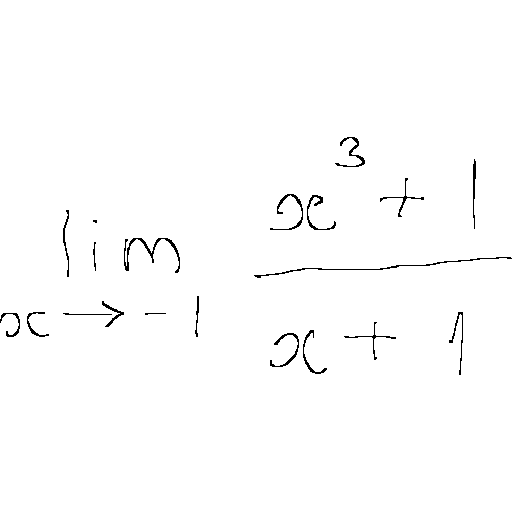 lim x → -1 (x³ + 1) / (x + 1)